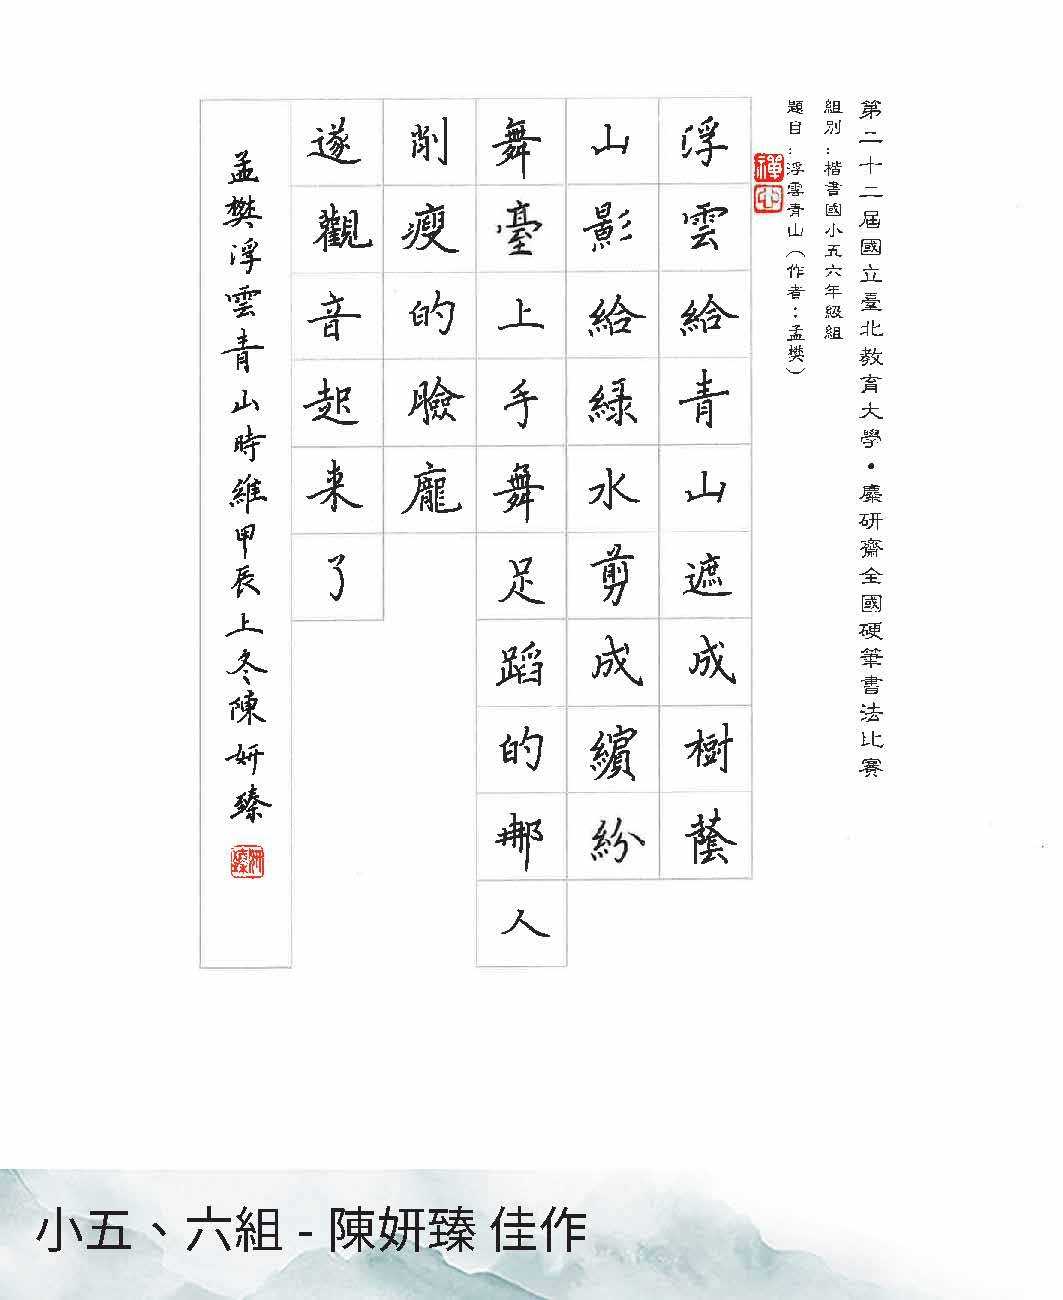 第二十二屆國立臺北教育大學・麋研齋全國硬筆書法比賽
組別：楷書國小五六年級組
題目：浮雲青山（作者：孟樊）
浮雲給青山遮成樹蔭
山影給綠水剪成繽紛
舞臺上手舞足蹈的那人
削瘦的臉龐
遂觀音起來了
孟樊浮雲青山時維甲辰上冬陳妍臻
妍臻
小五、六組 - 陳妍臻 佳作